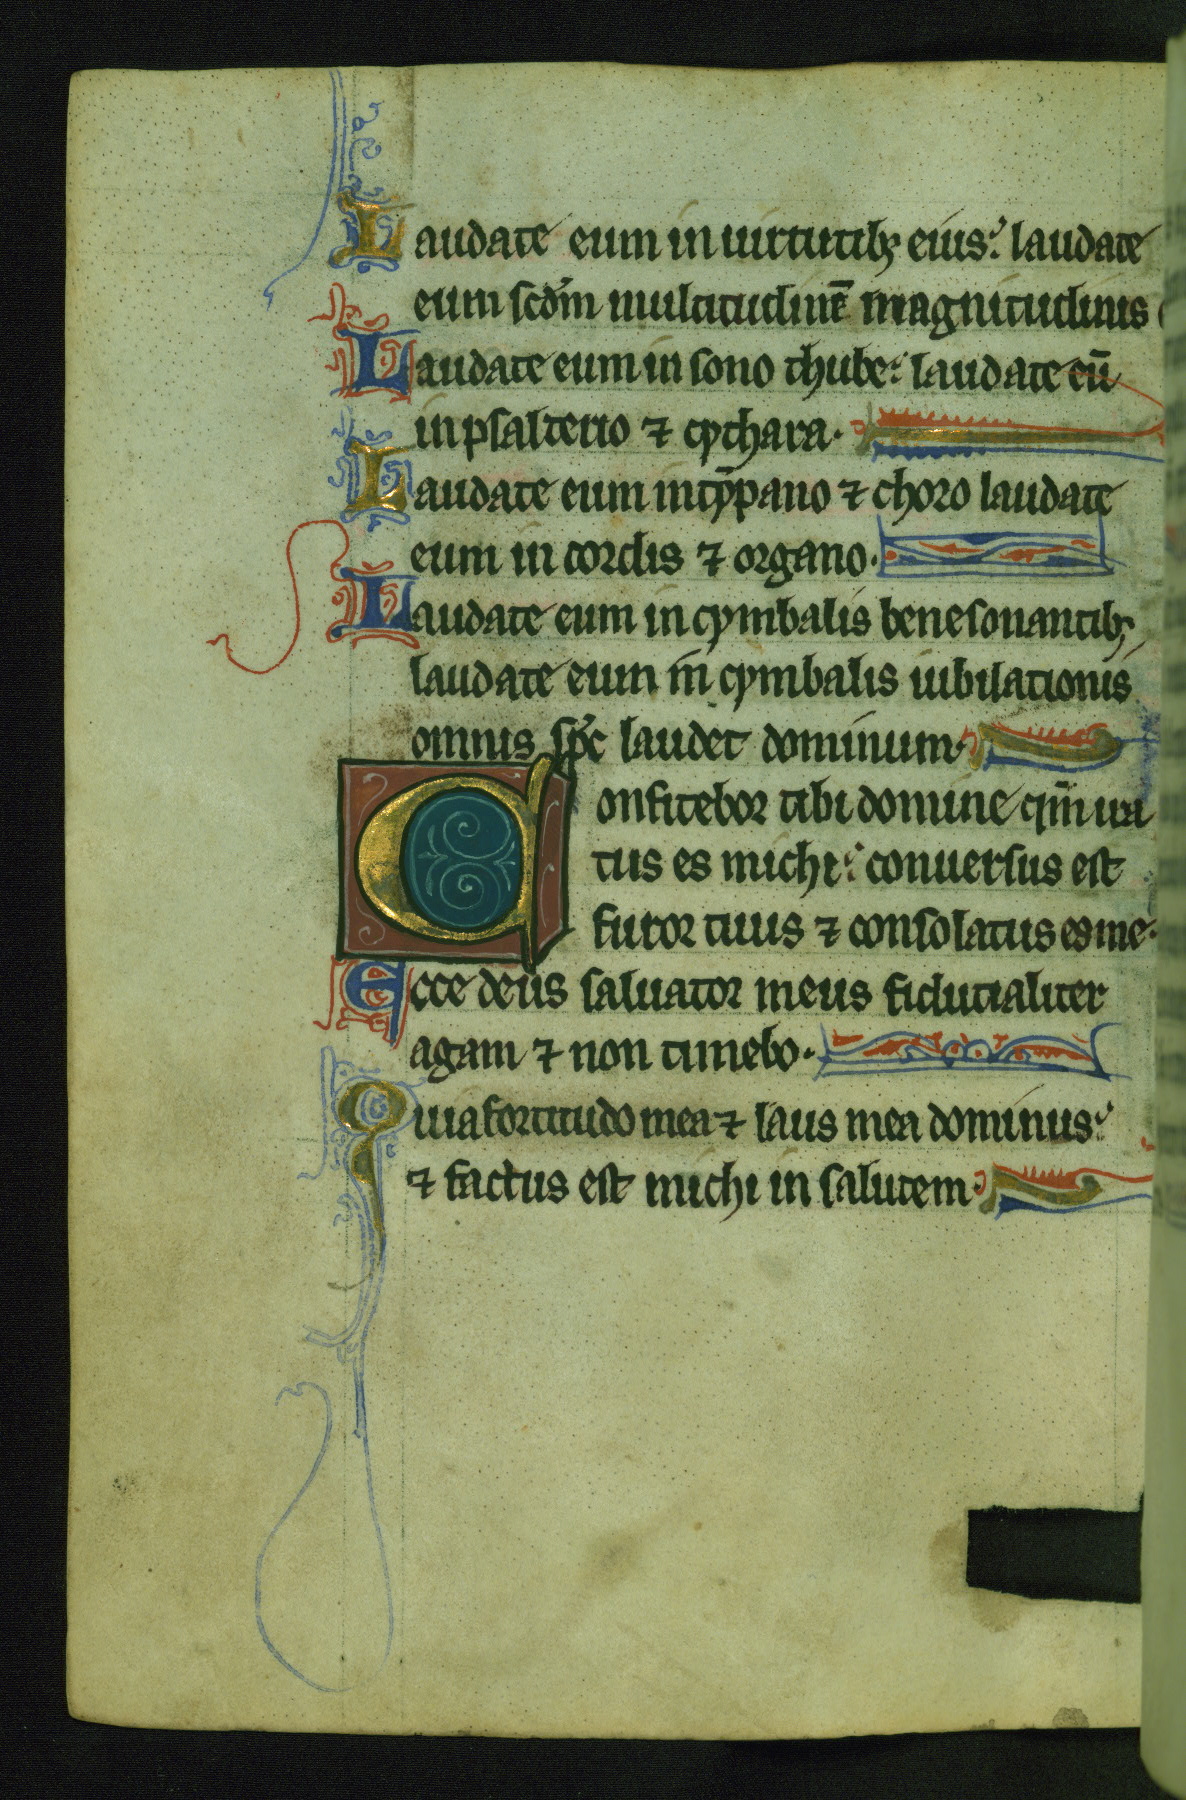 Laudate eum in uirtutibꝫ eius: laudate
eum scd̾m multitudinē magnitudinis
Laudate eum in sono thube: laudate eū
in psalterio ⁊ cythara.
Laudate eum in tȳpano ⁊ choro laudate
eum in cordis ⁊ organo.
Laudate eum in cymbalis benesonantibꝫ
laudate eum in cymbalis iubilationis
omnis sp̄c laudet dominum.
Confitebor tibi domine qm̄ ira
tus es michi: conuersus est
furor tuus ⁊ consolatus es me.
Ecce deus saluator meus fiducialiter
agam ⁊ non timebo.
Quia fortitudo mea ⁊ laus mea dominus:
⁊ factus est michi in salutem.